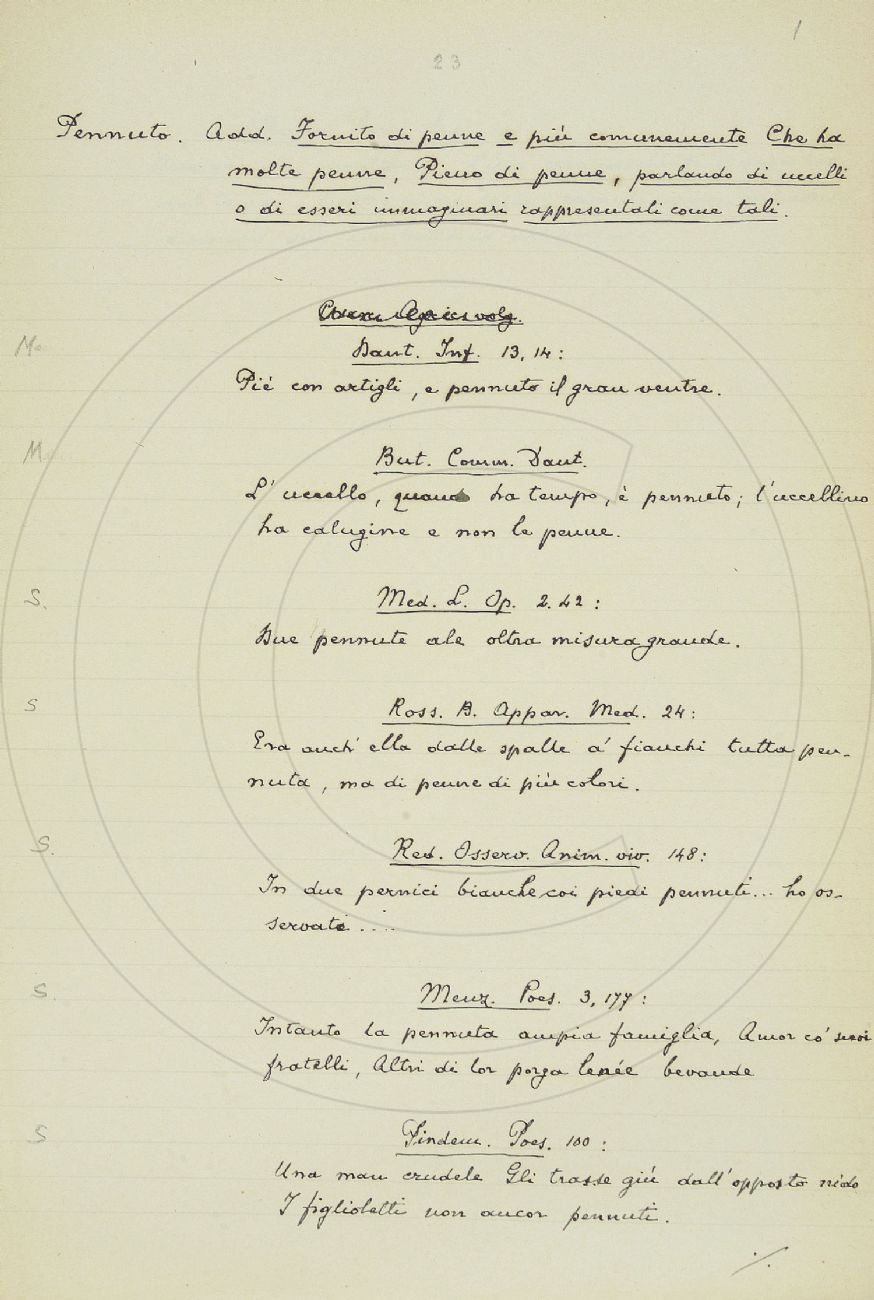 1
23
Pennuto. Add. Fornito di penne e più comunemente Che ha
molte penne, Pieno di penne, parlando di uccelli
o di esseri immaginari rappresentati come tali.
M.
Dant. Inf. 13, 14:
Piè con artigli, e pennuto il gran ventre.
M.
But. Comm. Dant.
L'uccello, quand ha tempo, è pennuto; l'uccellino
ha calugine e non le penne.
S.
Med. L. Op. 2. 42:
Due pennute ale oltra misura grande.
S
Ross. B. Appar. Med. 24:
Era anch'ella dalle spalle a' fianchi tutta pen-
nuta, ma di penne di più colori.
S.
Red. Osserv. Anim. viv. 148:
In due pernici bianche coi piedi pennuti... ho os-
servato....
S.
Menz. Poes. 3, 177:
Intanto la pennuta ampia famiglia, Amor co' suoi
fratelli, Altri di lor porga lenée bevande
S
Pindem. Poes. 100:
Una man crudele Gli trasse giù dall'opposto nido
I figlioletti non ancor pennuti.
./.